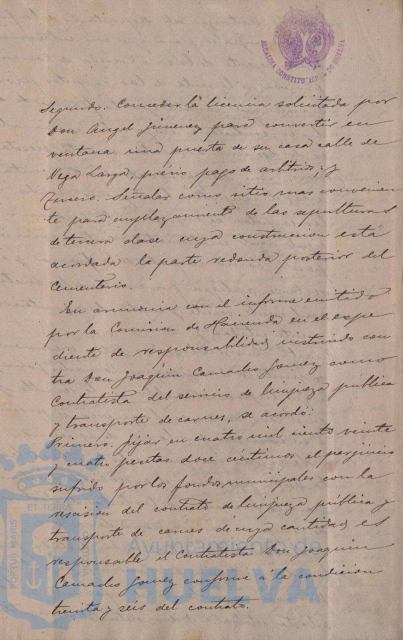 ALCALDIA CONSTITUCIONAL DE HUELVA
Segundo. Conceder la licencia solicitada por
Don Angel Jimenez para convertir en
ventana una puerta de su casa calle de
Vega Larga, previo pago de arbitrios; y
Tercero. Señalar como sitio mas convenien
te para emplazamiento de las sepulturas
de tercera clase cuya construccion está
acordada la parte redonda posterior del
Cementerio.
En armonia con el informe emitido
por la Comision de Hacienda en el expe
diente de responsabilidad instruido con
tra Don Joaquin Camacho Gomez como
Contratista del servicio de limpieza publica
y transporte de carnes, se acordó:
Primero. Fijar en cuatro mil ciento veinte
y cuatro pesetas doce céntimos el perjuicio
sufrido por los fondos municipales con la
rescision del contrato de limpieza pública y
transporte de carnes de cuya cantidad es
responsable el Contratista Don Joaquin
Camacho Gomez conforme á la condicion
treinta y seis del contrato.
PORTUS MARIS ET
Ayuntamiento de
HUELVA